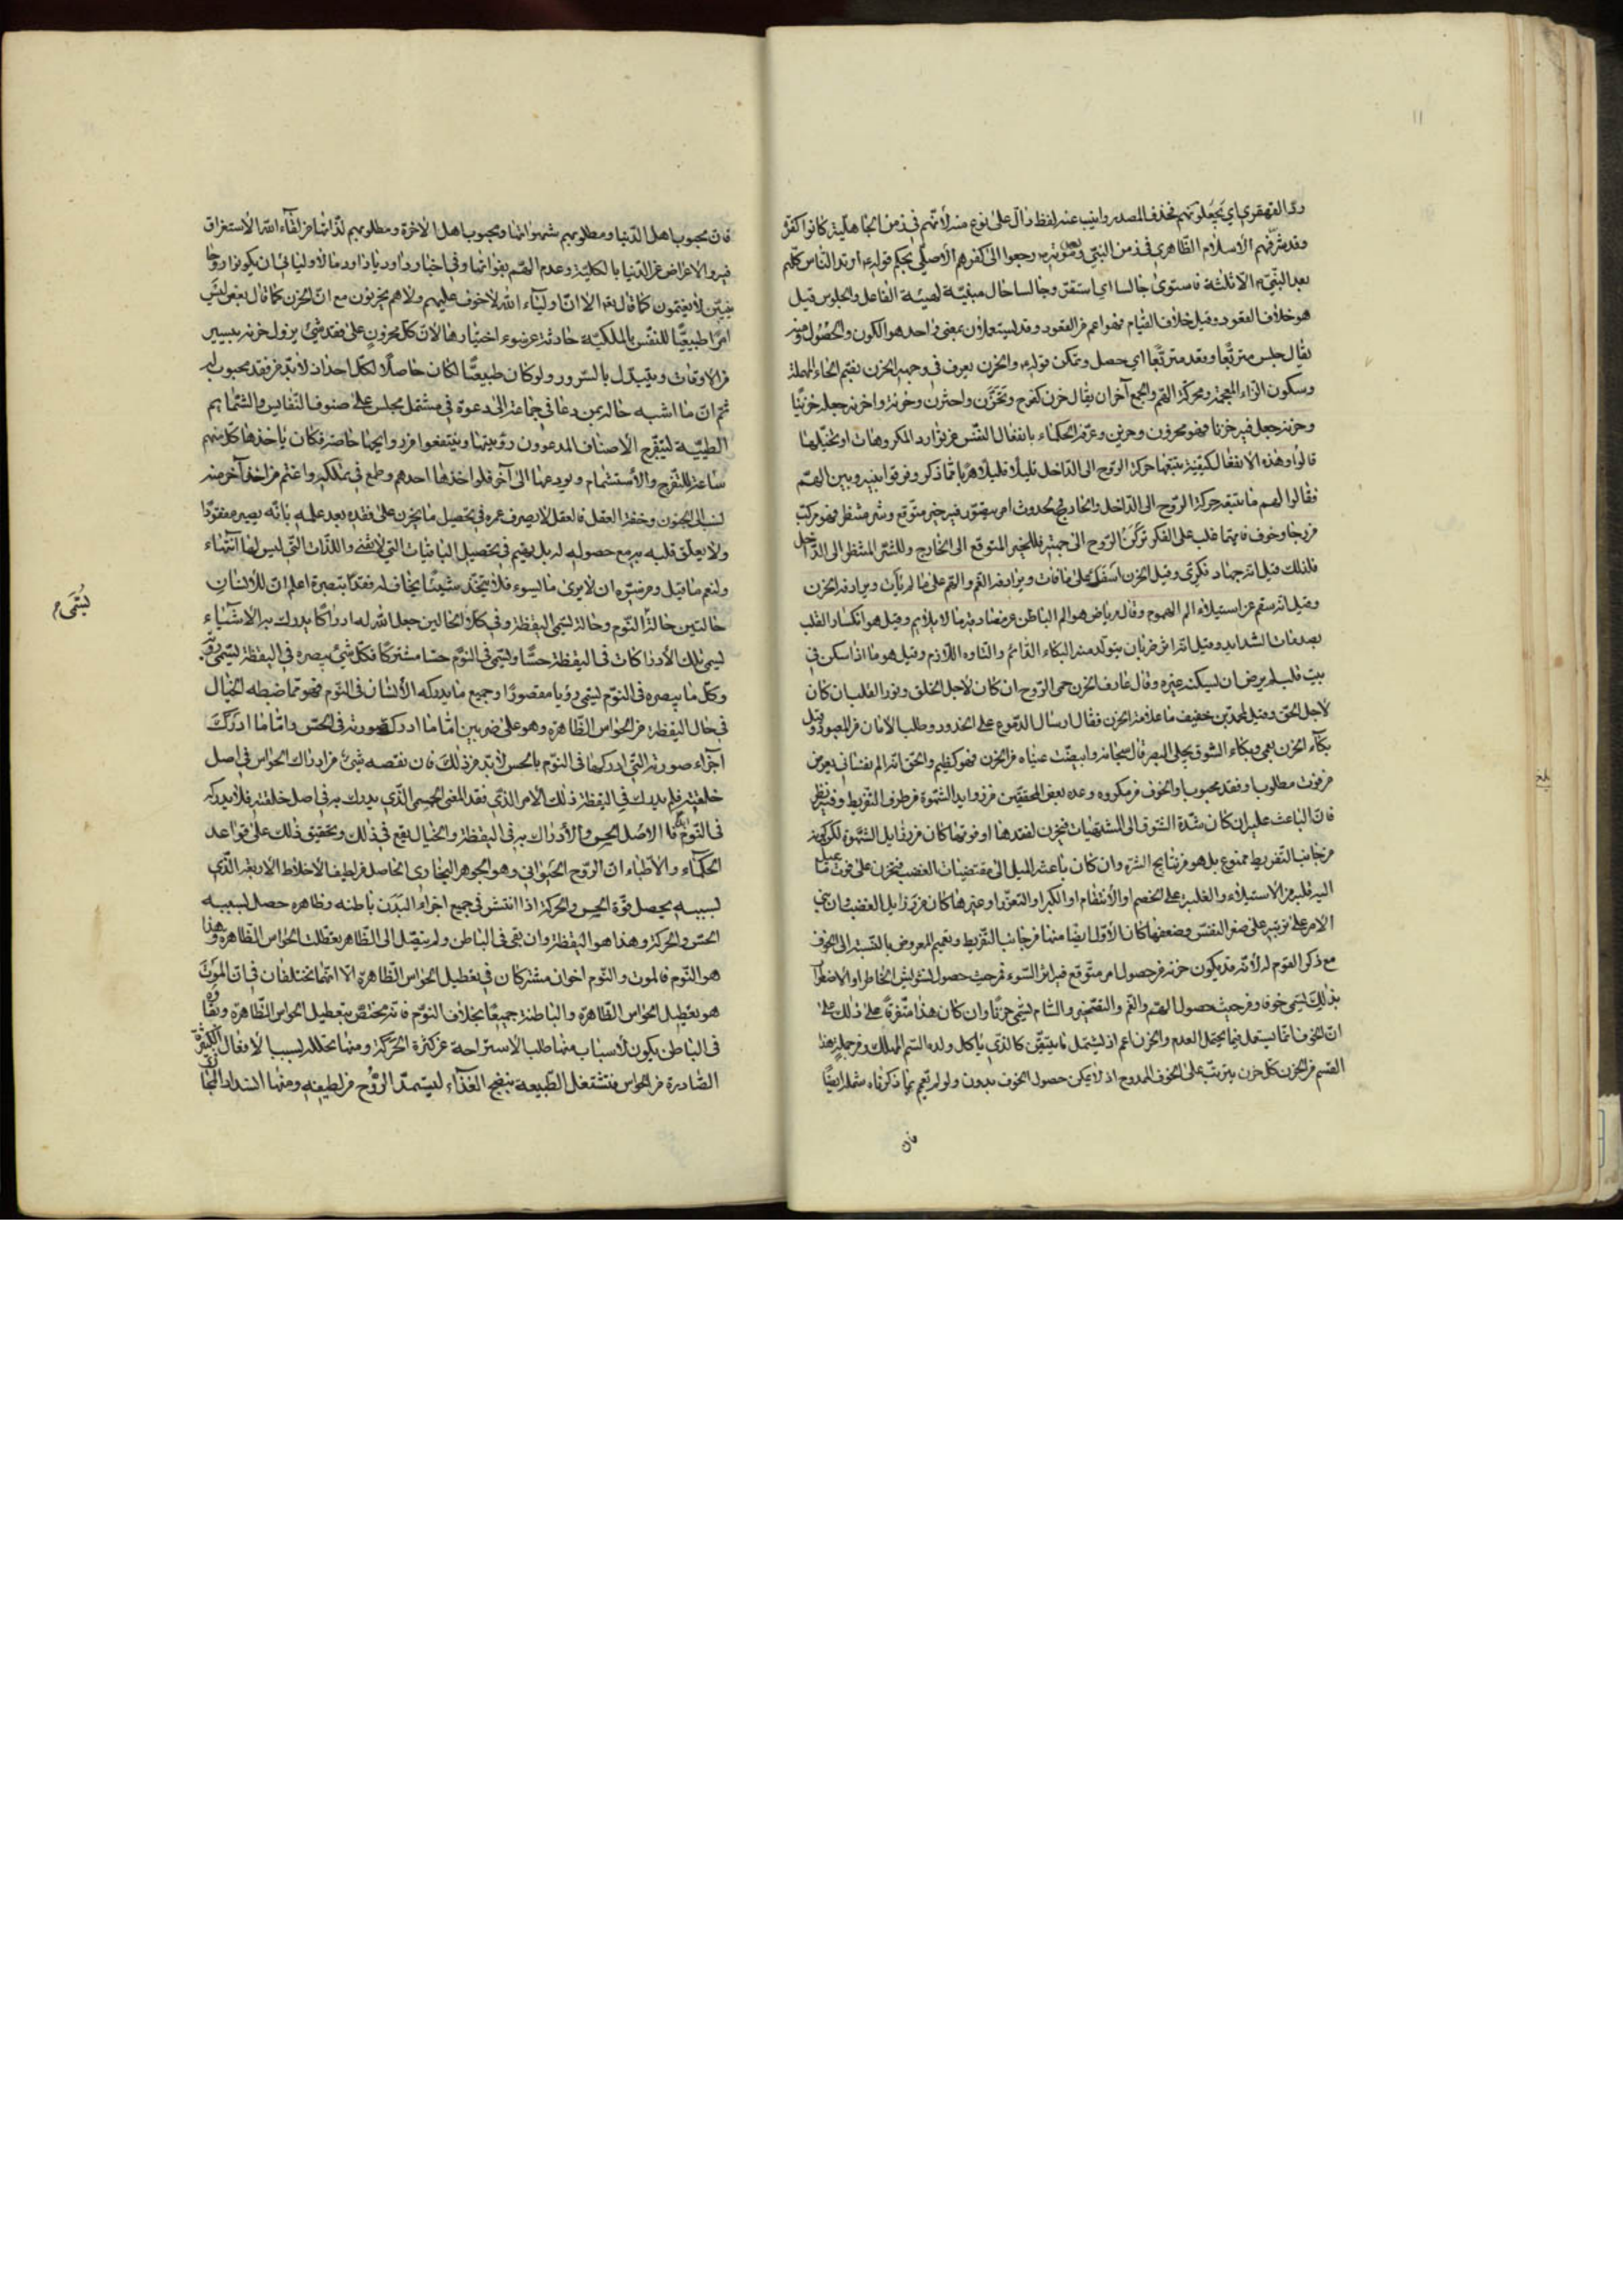 11
ردّ القهقرى اي يجعلونهم فحذف المصدر وانيب عنه لفظ دالّ على نوع منه لأنّهم في زمن الجاهلية كانوا كفرة
وقد شرّفهم الأسلام الظاهري في زمن النبيّ وبعد موته رجعوا الى كفرهم الأصلي بحكم قوله ارتد الناس كلّهم
بعد النبيّ الّا ثلثة فاستوى جالسا اي استقرّ وجالسا حال مبيّنة لهيئة الفاعل والجلوس قيل
هو خلاف القعود وقيل خلاف القيام فهو اعم من القعود وقد يستعملان بمعنى واحد هو الكون والحصول ومنه
يقال جلس متربّعا وقعد متربّعا اي حصل وتمكن قوله والحزن يعرف في وجهه الحزن بضم الحاء المهملة
وسكون الزاء المعجمة ومحركة الهم والجمع احزان يقال حزن كفرح وتحزّن واحتزن وحزنه واحزنه جعله حزينا
وحزنه جعل فيه حزنا فهو محزون وحزين وعرّفه الحكماء بانفعال النفس عن توارد المكروهات او تخيّلها
قالوا وهذه الانفعال كيفيّة يتبعها حركة الروح الى الداخل قليلًا قليلًا هربا ممّا ذكر وفرقوا بينه وبين الهمّ
فقالوا الهم ما يتبعه حركة الروح الى الداخل والخارج لحدوث امر يتصوّر فيه خير متوقع وشر منتظر فهو مركب
من رجا وخوف فايهما غلب على الفكر تركن الروح الى جهته فللخير المتوقع الى الخارج وللشّر المنتظر الى الداخل
فلذلك قيل انه جهاد فكري وقيل الحزن اسفك على ما فات ويرادفه الغم والهم على ما لم يأت ويرادفه الحزن
وقيل انه سقم عن استيلاء الم الهموم وقال رياض هو الم الباطن عن مصادفة ما لا يلايم وقيل هو انكسار القلب
بصدمات الشدايد وقيل انه يتولد منه البكاء الدائم والتأوه اللازم وقيل هو ما اذا سكن في
بيت قلب لم يرض ان يسكنه غيره وقال عارف الحزن حمى الروح ان كان لأجل الخلق ونور القلب ان كان
لأجل الحق وقيل لمحمد بن خفيف ما علامة الحزن فقال ارسال الدموع على الخدود وطلب الأمان من المعبود وقيل
بكاء الحزن يعمي وبكاء الشوق يجلي البصر قال سبحانه وابيضّت عيناه من الحزن فهو كظيم والحق انه الم نفساني يعرض
من فوت مطلوب او فقد محبوب او الخوف من مكروه وعده بعض المحققين من رذايل الشهوة من طرف التفريط وفيه نظر
فانّ الباعث عليه ان كان شدّة الشوق الى المشتهيات فيحزن لفقدها او فوتها كان من رذايل الشهوة لكن كونه
من جانب التفريط ممنوع بل هو من نتايج الشره وان كان باعثه الميل الى مقتضيات الغضب فيحزن على فوت ما يميل
اليه قلبه من الاستيلاء والغلبة على الخصم او الأنتقام او الكبر او التعزز او غيرها كان من رذايل الغضب وان بني
الامر على ترتبه على صغر النفس وضعفها كان الأول ايضا منها من جانب التفريط وتعميم المعروض بالنسبة الى الخوف
مع ذكر القوم له لأنّه قد يكون حزنه من حصول امر متوقع فيه اثر السّوء فمن حيث حصول تشويش الخاطر او الاضطراب
بذلك يسمى خوفا ومن حيث حصول الهم والغم والتألم يسمّى حزنًا وان كان هذا متفرقًا على ذلك على
انّ الخوف انّما يستعمل فيما يحتمل العدم والحزن اعم اذ يشتمل ما يتيقّن كالذي يأكل ولده السّم المهلك ومن جملة هذا
القسم من الحزن كل حزن يترتّب على الخوف الممدوح اذ لا يمكن حصول الخوف بدون ولو لم نعمم بما ذكرناه شمله ايضًا
فان
بلغ
فان محبوب اهل الدّنيا ومطلوبهم شهواتها ومحبوب اهل الأخرة ومطلوبهم لذّاتها من لقاء الله الأستغراق
فيه والاعراض عن الدّنيا بالكليّة وعدم الهمّ بفواتها وفي اخبار داود يا داود ما لأوليائي ان يكونوا روحا
نيّين لا يغتمون كما قال تعالى الا انّ اولياء الله لا خوف عليهم ولا هم يحزنون مع انّ الحزن كما قال بعض ليس
امرًا طبيعيًّا للنفس بالملكيّة حادثة عن سوء اختيارها لأنّ كل محزون على فقد شيء يزول حزنه بيسير
من الاوقات ويتبدّل بالسّرور ولو كان طبيعيًّا لكان حاصلًا لكل احد اذ لا بدّ من فقد محبوب له
ثم انّ ما اشبه حاله بمن دعا في جماعة الى دعوة في مشتمل مجلس على صنوف النّفايس والشّمايم
الطيّبة ليتفرج الاصناف المدعوون رؤيتها وينتفعوا من روايحها حاضره فكان يأخذها كل منهم
ساعة للتفرج والأستشمام ويودعها الى آخر فلو اخذها احدهم وطمع في تملكه واغتم من اخذ آخر منه
لنسب الى الجنون وخفة العقل فالعقل لا يصرف عمره في تحصيل ما يحزن على فقده بعد علمه بانّه يصير مفقودًا
ولا يعلّق قلبه به مع حصوله له بل يهتم في تحصيل الباقيات التي لا تفنى واللذّات التي ليس لها انتهاء
ولنعم ما قيل ومن سرّه ان لا يرى ما يسوءه فلا يتخذ شيئًا يخاف له فقدًا تبصرة اعلم انّ للأنسان
حالتين حالة النّوم وحالة تسمى اليقظة وفي كلا الحالين جعل الله له ادراكًا يدرك به الأشياء
تسمى تلك الأدراكات في اليقظة حسًّا وتسمى في النّوم حسًا مشتركًا فكل شيء يبصره في اليقظة يسمّى رؤية
وكل ما يبصره في النّوم يسمى رؤيا مقصورًا وجميع ما يدركه الأنسان في النّوم فهو ممّا ضبطه الخيال
في حال اليقظة من الحواس الظّاهرة وهو على ضربين امّا ما ادرك صورته في الحسّ وامّا ما ادرك
اجزاء صورته التي ادركها في النّوم بالحس لا بدّ من ذلك فان نقصه شيء من ادراك الحواس في اصل
خلقته فلم يدرك في اليقظة ذلك الامر الذي فقد المعنى الحسّي الّذي يدرك به في اصل خلقته فلا يدركه
في النّوم فالاصل الحس والأدراك به في اليقظة والخيال يتبع في ذلك وتحقيق ذلك على قواعد
الحكماء والأطباء انّ الرّوح الحيواني وهو الجوهر البخاري الحاصل من لطيف الأخلاط الأربعة الّذي
بسببه يحصل قوّة الحس والحركة اذا انتشر في جميع اجزاء البدن باطنه وظاهره حصل بسببه
الحسّ والحركة وهذا هو اليقظة وان بقي في الباطن ولم يتصّل الى الظّاهر تعطّلت الحواس الظّاهرة وهذا
هو النّوم فالموت والنّوم اخوان مشتركان في تعطيل الحواس الظّاهرة الّا انّهما يختلفان فانّ الموت
هو تعطيل الحواس الظّاهرة والباطنة جميعًا بخلاف النّوم فانه يختصّ بتعطيل الحواس الظّاهرة وبقاؤه
في الباطن يكون لأسباب منها طلب الأستراحة عن كثرة الحركة ومنها تحلله بسبب الأفعال الكثيرة
الصّادرة من الحواس فتشتغل الطّبيعة بنضج الغذاء ليستمدّ الرّوح من لطيفه ومنها انسداد المجاري
تُسَمّى